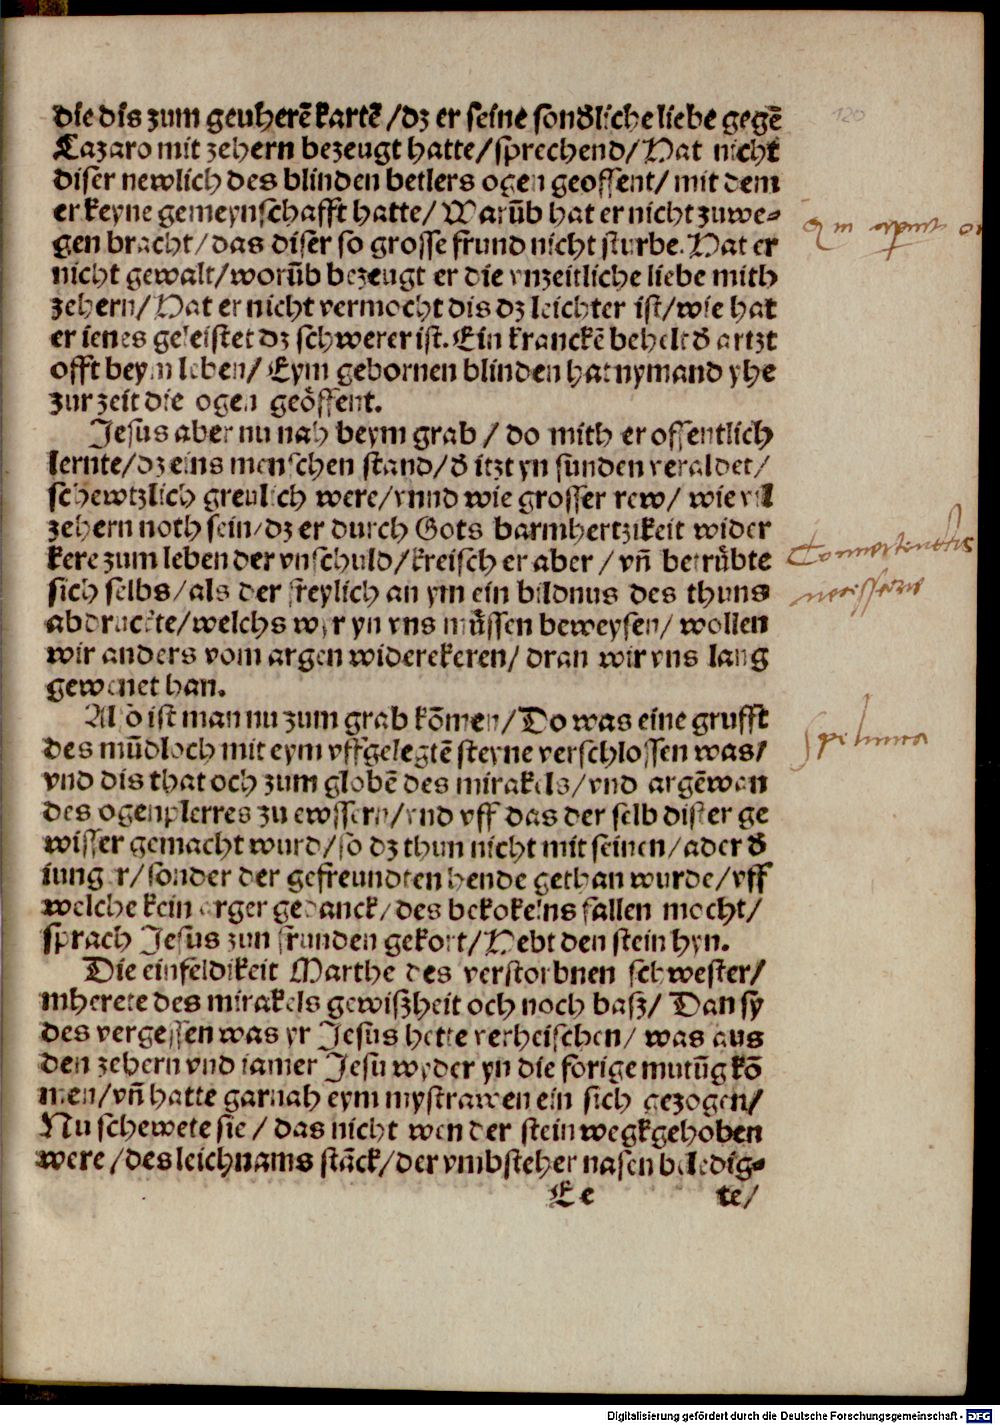 die dis zum geuherē kartē / dz er seine sonđliche liebe gegē
Lazaro mit zehern bezeugt hatte / sprechend / Hat nicht
diser newlich des blinden betlers ogen geoffent / mit dem
er keyne gemeynschafft hatte / Warūb hat er nicht zuwe⸗
gen bracht / das diser so grosse frund nicht sturbe. Hat er
nicht gewalt / worūb bezeugt er die vnzeitliche liebe mith
zehern / Hat er nicht vermocht dis dz leichter ist / wie hat
er ienes geleistet dz schwerer ist. Ein kranckē behelt đ artzt
offt beym leben / Eym gebornen blinden hat nymand yhe
zur zeit die ogen geöffent.
Jesus aber nu nah beym grab / do mith er offentlich
lernte / dz eins menschen stand / đ itzt yn sunden veraldet /
schewtzlich greulich were / vnnd wie grosser rew / wie vil
zehern noth sein / dz er durch Gots barmhertzikeit wider
kere zum leben der vnschuld / kreisch er aber / vn̄ betrübte
sich selbs / als der freylich an ym ein bildnus des thuns
abdruckte / welchs wyr yn vns müssen beweysen / wollen
wir anders vom argen widerekeren / dran wir vns lang
gewenet han.
Also ist man nu zum grab kōmen / Do was eine grufft
des mūdloch mit eym vffgelegtē steyne verschlossen was /
vnd dis that och zum globē des mirakels / vnd argēwan
des ogenplerres zu ewssern / vnd vff das der selb dister ge
wisser gemacht wurd / so dz thun nicht mit seinen / ader đ
iunger / sonder der gefreundten hende gethan wurde / vff
welche kein arger gedanck / des bekokelns fallen mocht /
sprach Jesus zun frunden gekort / Hebt den stein hyn.
Die einfeldikeit Marthe des verstorbnen schwester /
mherete des mirakels gewißheit och noch baß / Dan sy
des vergessen was yr Jesus hette verheischen / was aus
den zehern vnd iamer Jesu wyder yn die forige mutūg kō
men / vn̄ hatte garnah eym mystrawen ein sich gezogen /
Nu schewete sie / das nicht wen der stein wegkgehoben
were / des leichnams stāck / der vmbsteher nasen beledig⸗
Ee te /
120
Qui aperuit
necessaria
Spelunca
Digitalisierung gefördert durch die Deutsche Forschungsgemeinschaft - DFG